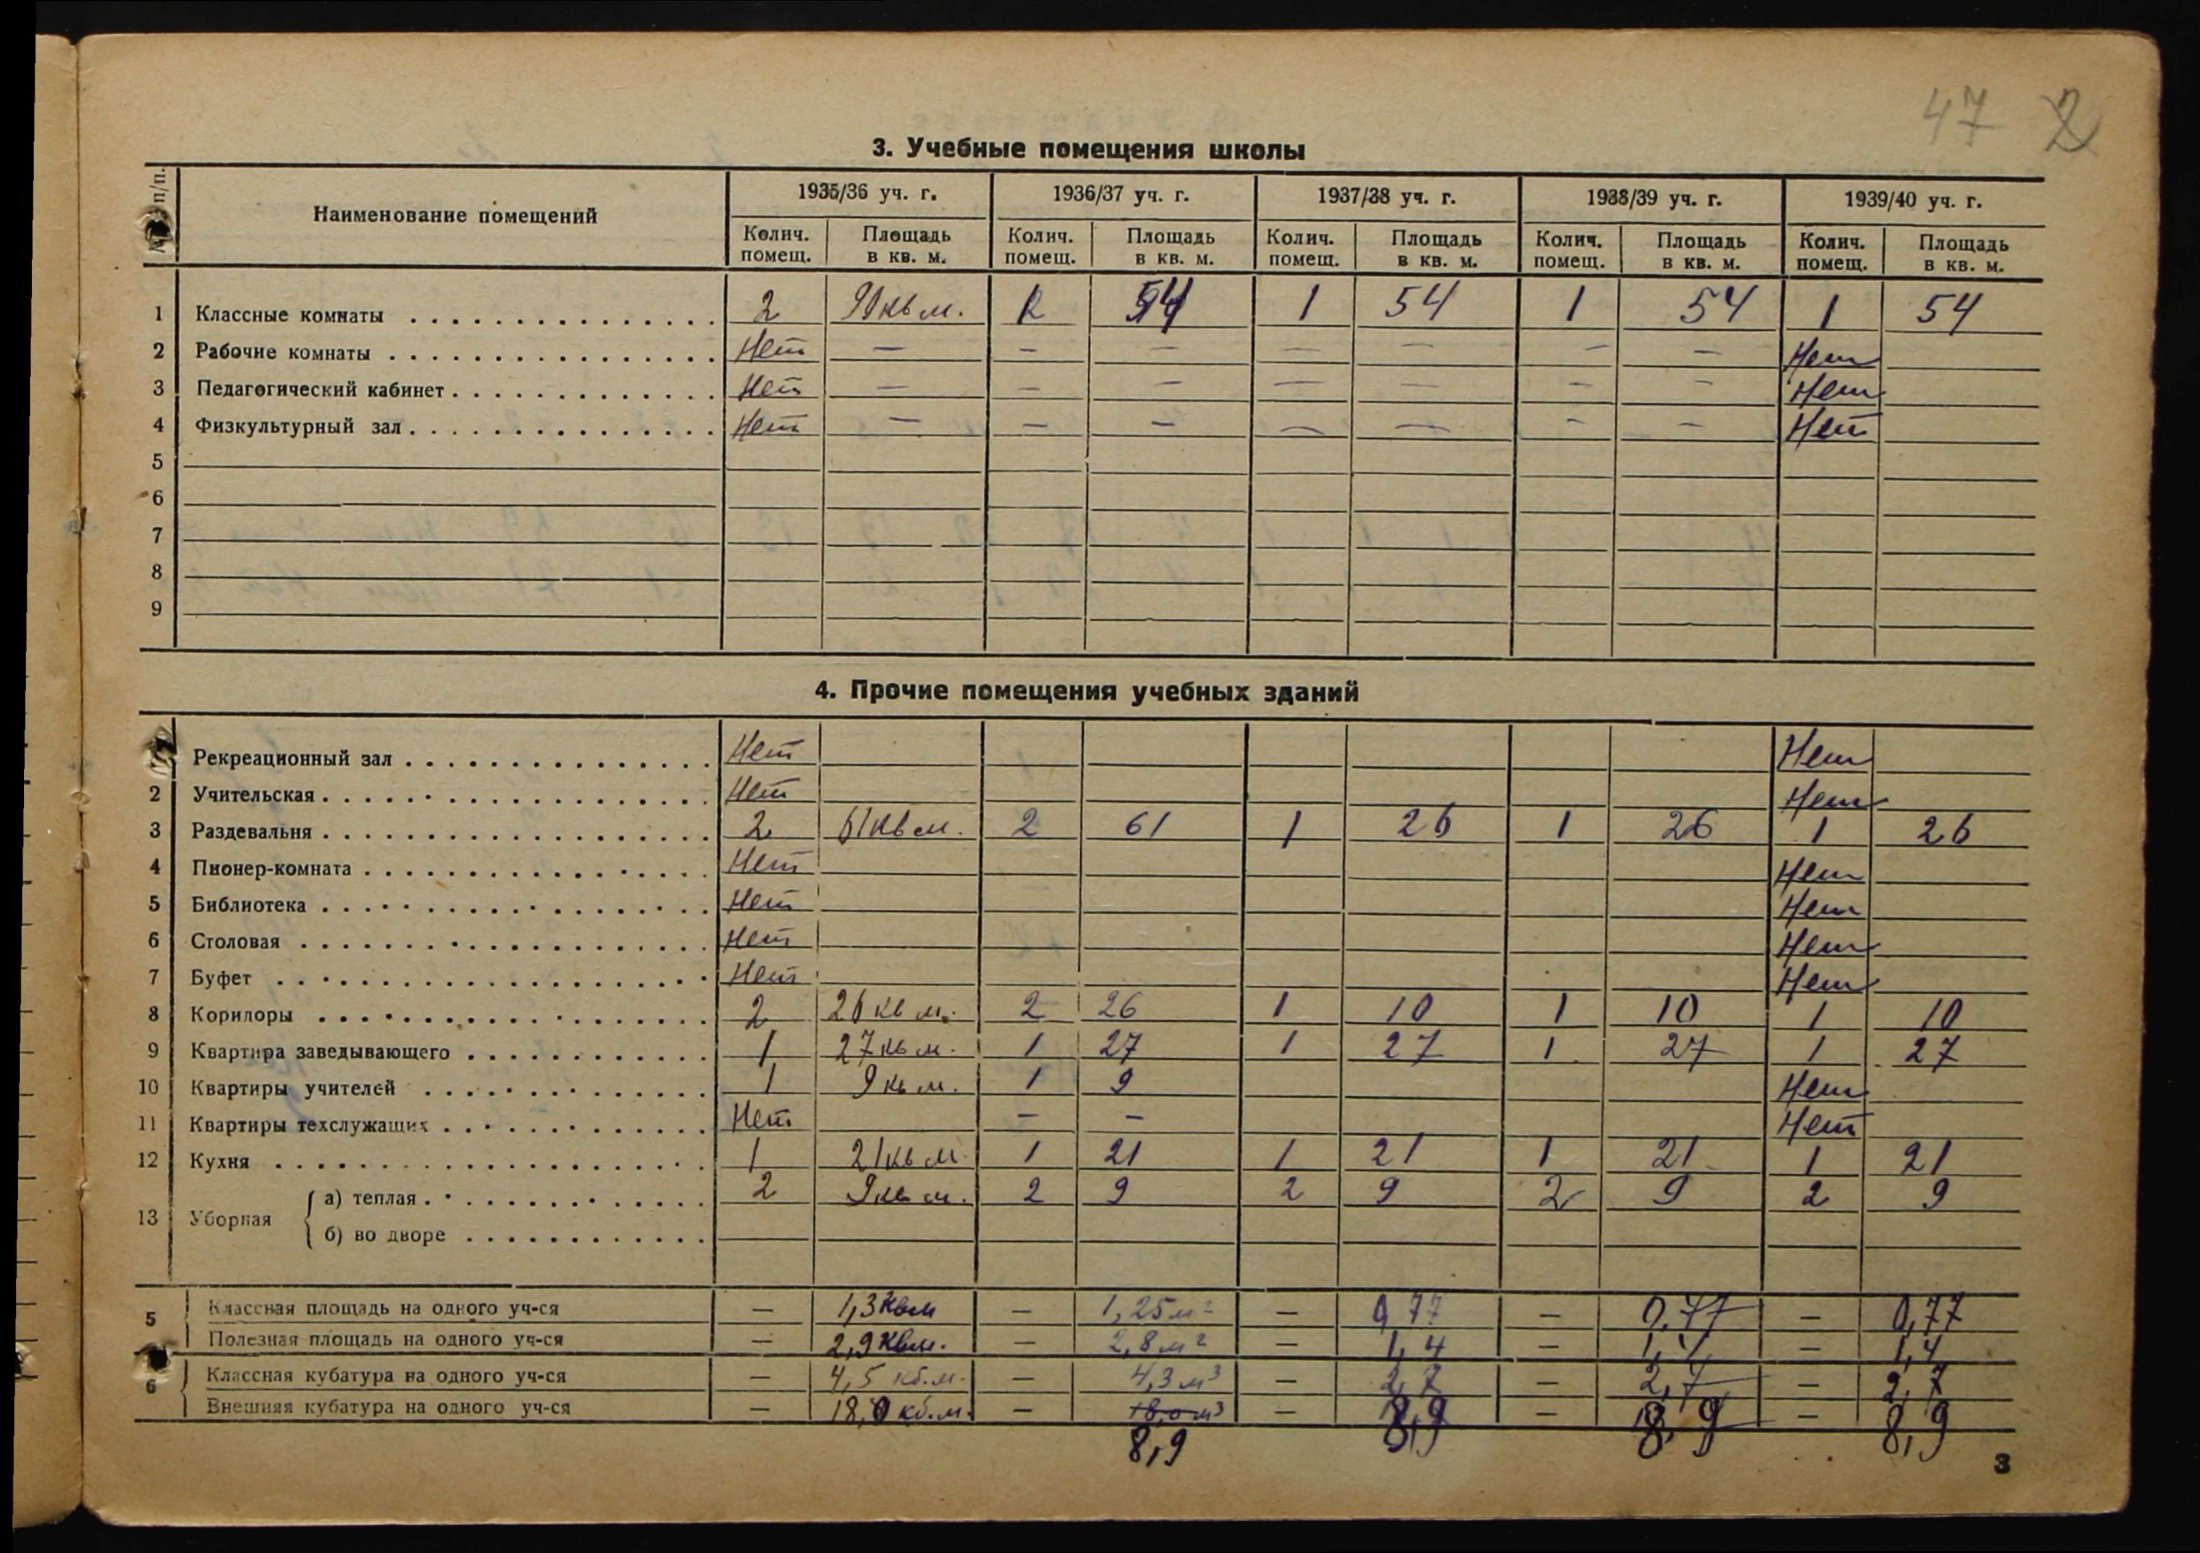 47 2
3. Учебные помещения школы
№ п/п. Наименование помещений 1935/36 уч. г. 1936/37 уч. г. 1937/38 уч. г. 1938/39 уч. г. 1939/40 уч. г.
Колич. помещ. Площадь в кв. м. Колич. помещ. Площадь в кв. м. Колич. помещ. Площадь в кв. м. Колич. помещ. Площадь в кв. м. Колич. помещ. Площадь в кв. м.
1 Классные комнаты 2 90 кв м. 54 1 54 1 54 1 54
2 Рабочие комнаты Нет — — — — — — — Нет
3 Педагогический кабинет Нет — — — — — — — Нет
4 Физкультурный зал Нет — — — — — — — Нет
5
6
7
8
9
4. Прочие помещения учебных зданий
Рекреационный зал Нет Нет
2 Учительская Нет Нет
3 Раздевальня 2 61 кв м. 2 61 1 26 1 26 1 26
4 Пионер-комната Нет Нет
5 Библиотека Нет Нет
6 Столовая Нет Нет
7 Буфет Нет Нет
8 Коридоры 2 26 кв м. 2 26 1 10 1 10 1 10
9 Квартира заведывающего 1 27 кв м. 1 27 1 27 1 27 1 27
10 Квартиры учителей 1 9 кв м. 1 9 Нет
11 Квартиры техслужащих Нет — — Нет
12 Кухня 1 21 кв м. 1 21 1 21 1 21 1 21
13 Уборная а) теплая 2 9 кв м. 2 9 2 9 2 9 2 9
б) во дворе
5 Классная площадь на одного уч-ся — 1,3 квм — 1,25 м² — 0,77 — 0,77 — 0,77
Полезная площадь на одного уч-ся — 2,9 квм. — 2,8 м² — 1,4 — 1,4 — 1,4
6 Классная кубатура на одного уч-ся — 4,5 кб.м. — 4,3 м³ — 2,7 — 2,7 — 2,7
Внешняя кубатура на одного уч-ся — 18,0 кб.м. — 18,0 м³ — 8,9 — 8,9 — 8,9
8,9
3